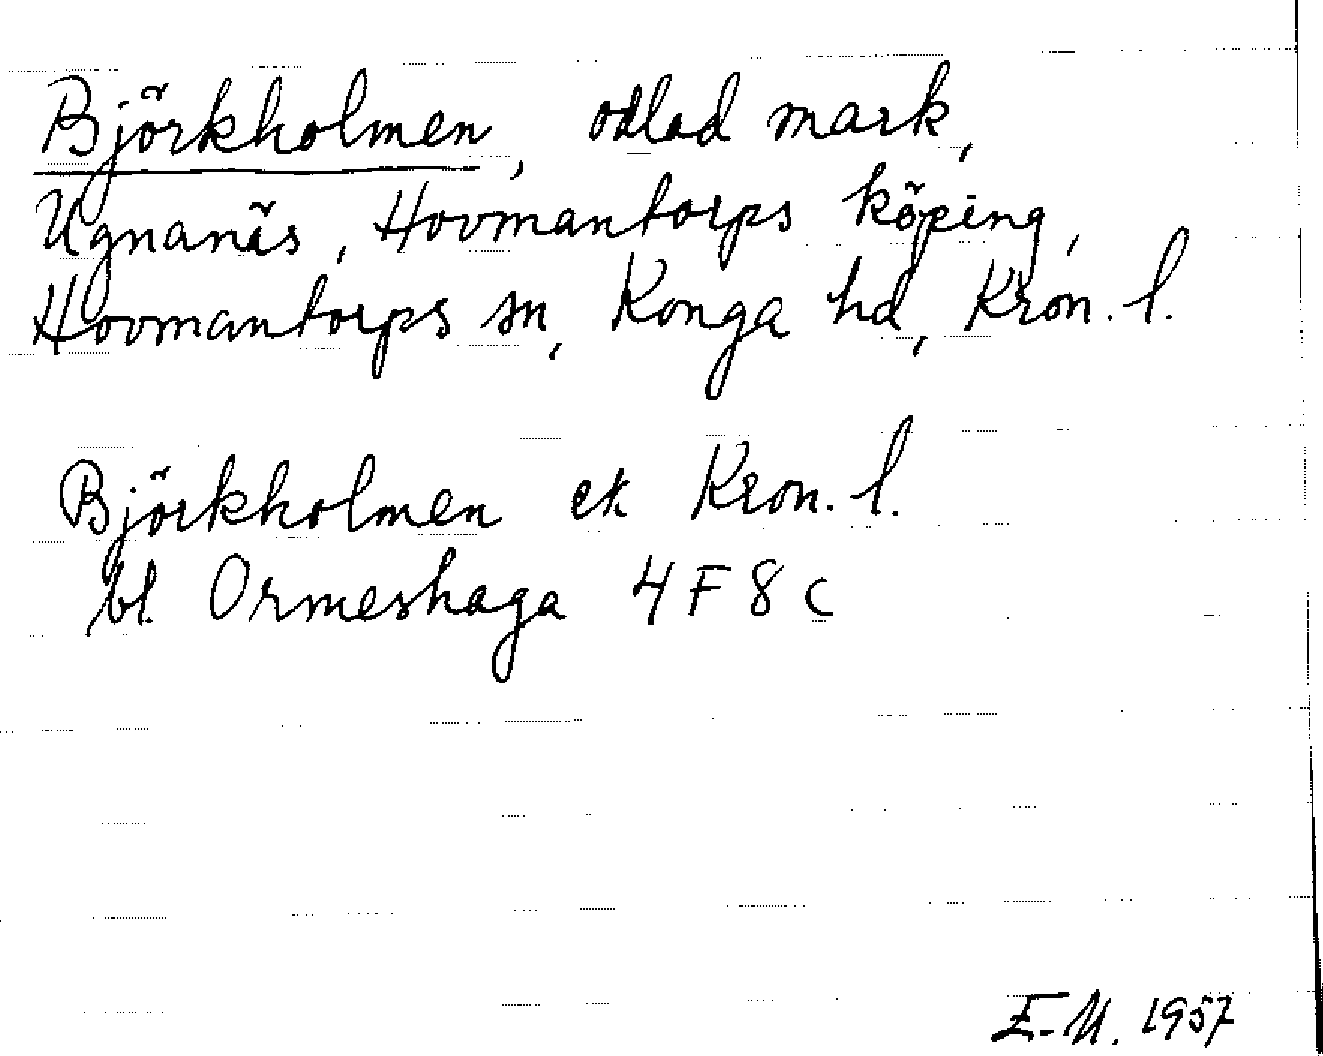 Björkholmen, odlad mark,
Ugnanäs, Hovmantorps köping,
Hovmantorps sn, Konga hd, Kron. l.
Björkholmen ek Kron. l.
bl. Ormeshaga 4 F 8 c
E. U. 1957